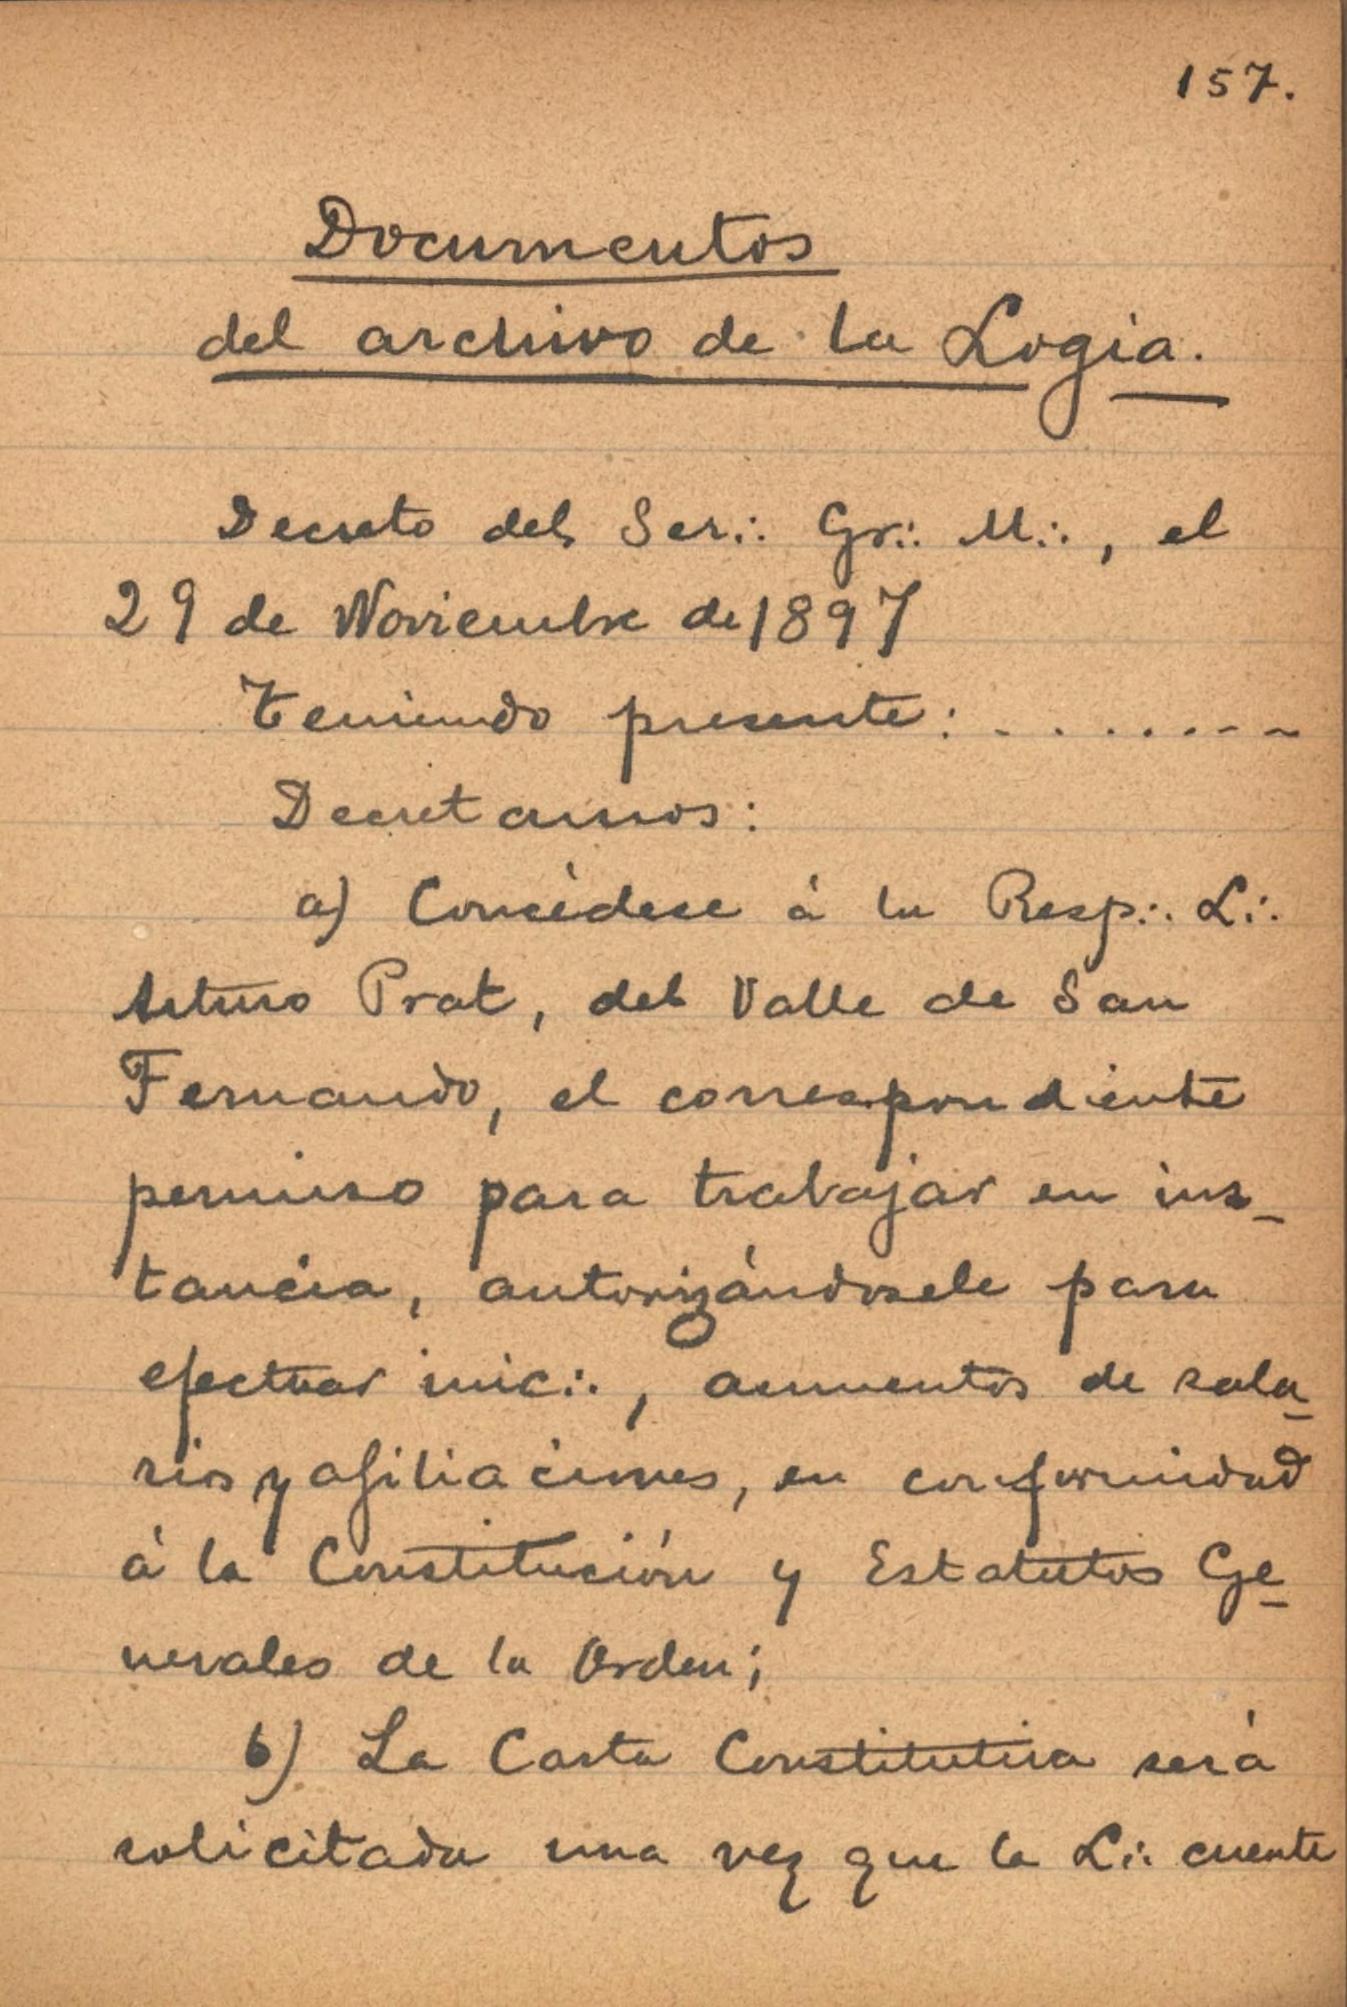 157.
Documentos
del archivo de la Logia.
Decreto del Ser∴ Gr∴ M∴, el
29 de Noviembre de 1897
Teniendo presente: . . . . . . . .
Decretamos:
a) Concédese á la Resp∴ L∴
Arturo Prat, del Valle de San
Fernando, el correspondiente
permiso para trabajar en ins-
tancia, autorizándosele para
efectuar inic∴, aumentos de sala-
rios y afiliaciones, en conformidad
á la Constitución y Estatutos Ge-
nerales de la Orden;
b) La Carta Constitutiva será
solicitada una vez que la L∴ cuente